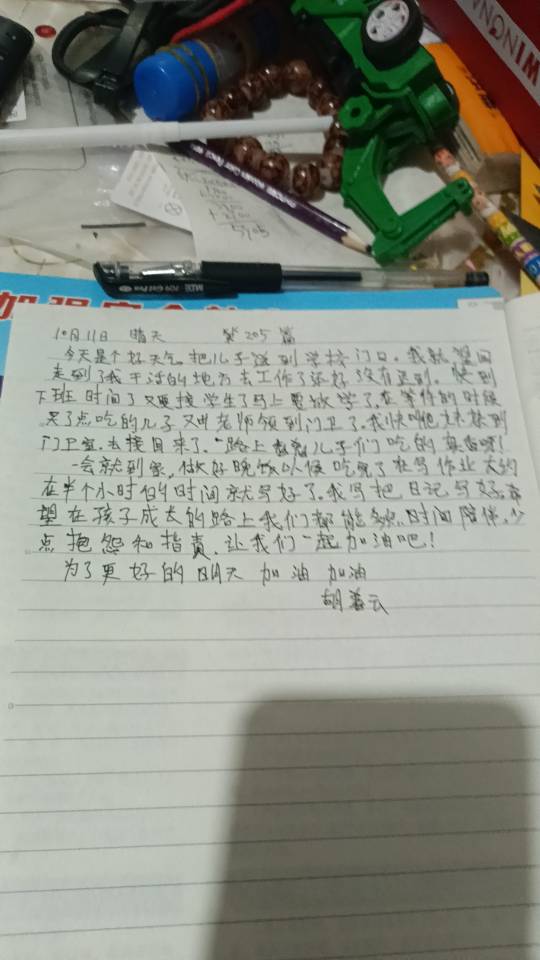 WINONA
5905
10月11日 晴天 第205篇
今天是个好天气。把儿子送到学校门口。我就
走到了我干活的地方去工作了还好没有迟到。快到
下班时间了又要接学生了马上要放学了。在等待的时候
买了点吃的儿子又叫老师领到门卫了。我快
门卫室去接回来了。一路上看见儿子们吃的真香呀！
一会就到家，做好晚饭以候吃完了在写作业大约
在半个小时的时间就写好了。我写把日记写好。希
望在孩子成长的路上我们都能多点时间陪伴。少
点抱怨和指责，让我们一起加油吧！
为了更好的明天 加油 加油
胡云